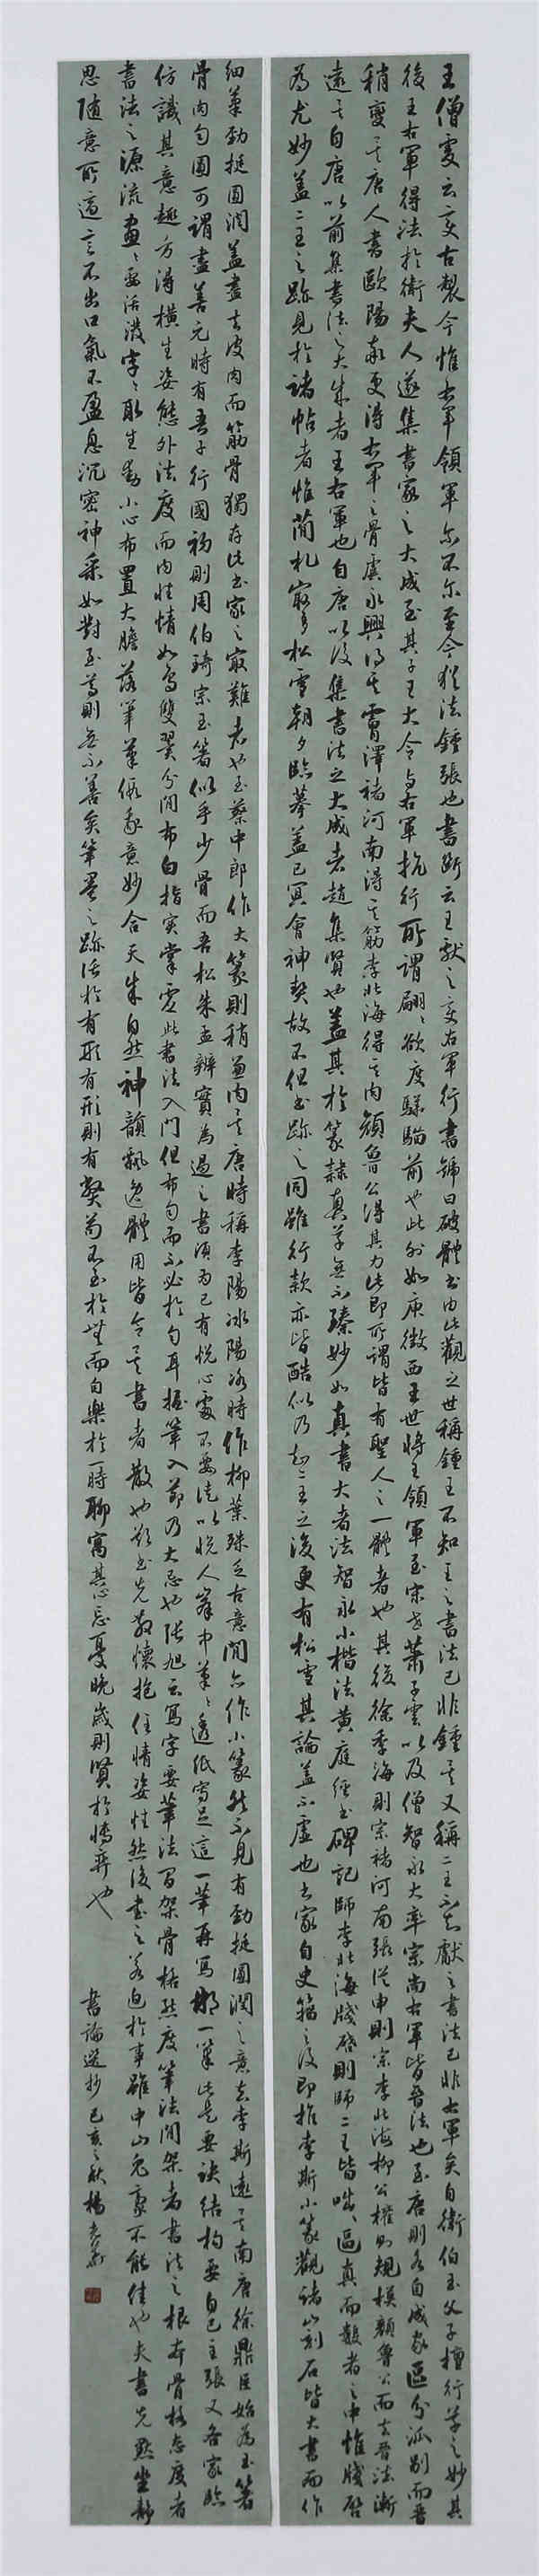 王僧虔云變古製今惟右軍領軍尔不尔至今猶法鍾張也書斷云王獻之變右軍行書號曰破體書由此觀之世稱鍾王不知王之書法已非鍾矣又稱二王不知獻之書法已非右軍矣自衛伯玉父子擅行草之妙其
後王右軍得法於衛夫人遂集書家之大成至其子王大令與右軍抗行所謂翩翩欲度驊騮前也此外如庾徵西王世將王領軍至宋世蕭子雲以及僧智永大率宗尚右軍皆晉法也至唐則各自成家區分派別而晉
稍變矣唐人書歐陽率更得右軍之骨虞永興得其膚澤褚河南得其筋李北海得其肉顏魯公得其力此即所謂皆有聖人之一體者也其後徐季海則宗褚河南張從申則宗李北海柳公權則規模顏魯公而去晉法漸
遠矣自唐以前集書法之大成者王右軍也自唐以後集書法之大成者趙集賢也蓋其於篆隸真草無不臻妙如真書大者法智永小楷法黃庭經書碑記師李北海牋啓則師二王皆咄咄逼真而數者之中惟牋啓
為尤妙蓋二王之跡見於諸帖者惟簡札最多松雪朝夕臨摹蓋已冥會神契故不但書跡之同雖行款亦皆酷似乃知二王之後更有松雪其論蓋不虛也書家自史籀之後即推李斯小篆觀諸山刻石皆大書而作
細筆勁挺圓潤蓋盡去皮肉而筋骨獨存此書家之最難者也至蔡中郎作大篆則稍兼肉矣唐時稱李陽冰陽冰時作柳葉殊乏古意間亦作小篆然不見有勁挺圓潤之意去李斯遠矣南唐徐鼎臣始為玉箸
骨肉勻圓可謂盡善元時有吾子行國初則周伯琦宗玉箸似乎少骨而吾松朱孟辨實為過之書須為己有悅心處不要徒以悅人筆中筆筆透紙寫足這一筆再寫那一筆此是要訣結構要自己主張又各家臨
仿識其意趣方得橫生姿態外法度而內性情如鳥雙翼分間布白指實掌虛此書法入門但布勻而不必於勻耳握筆入節乃大忌也張旭云寫字要筆法間架骨格態度筆法間架者書法之根本骨格態度者
書法之源流畫畫要活潑字字取生動小心布置大膽落筆筆假象意妙合天成自然神韻飄逸體用皆全矣書者散也欲書先散懷抱任情姿性然後書之若迫於事雖中山兔毫不能佳也夫書先默坐靜
思隨意所適言不出口氣不盈息沉密神采如對至尊則無不善矣筆墨之跡託於有形有形則有弊苟不至於無而自樂於一時聊寓其心忘憂晚歲則賢於博弈也
書論選抄己亥之秋楊